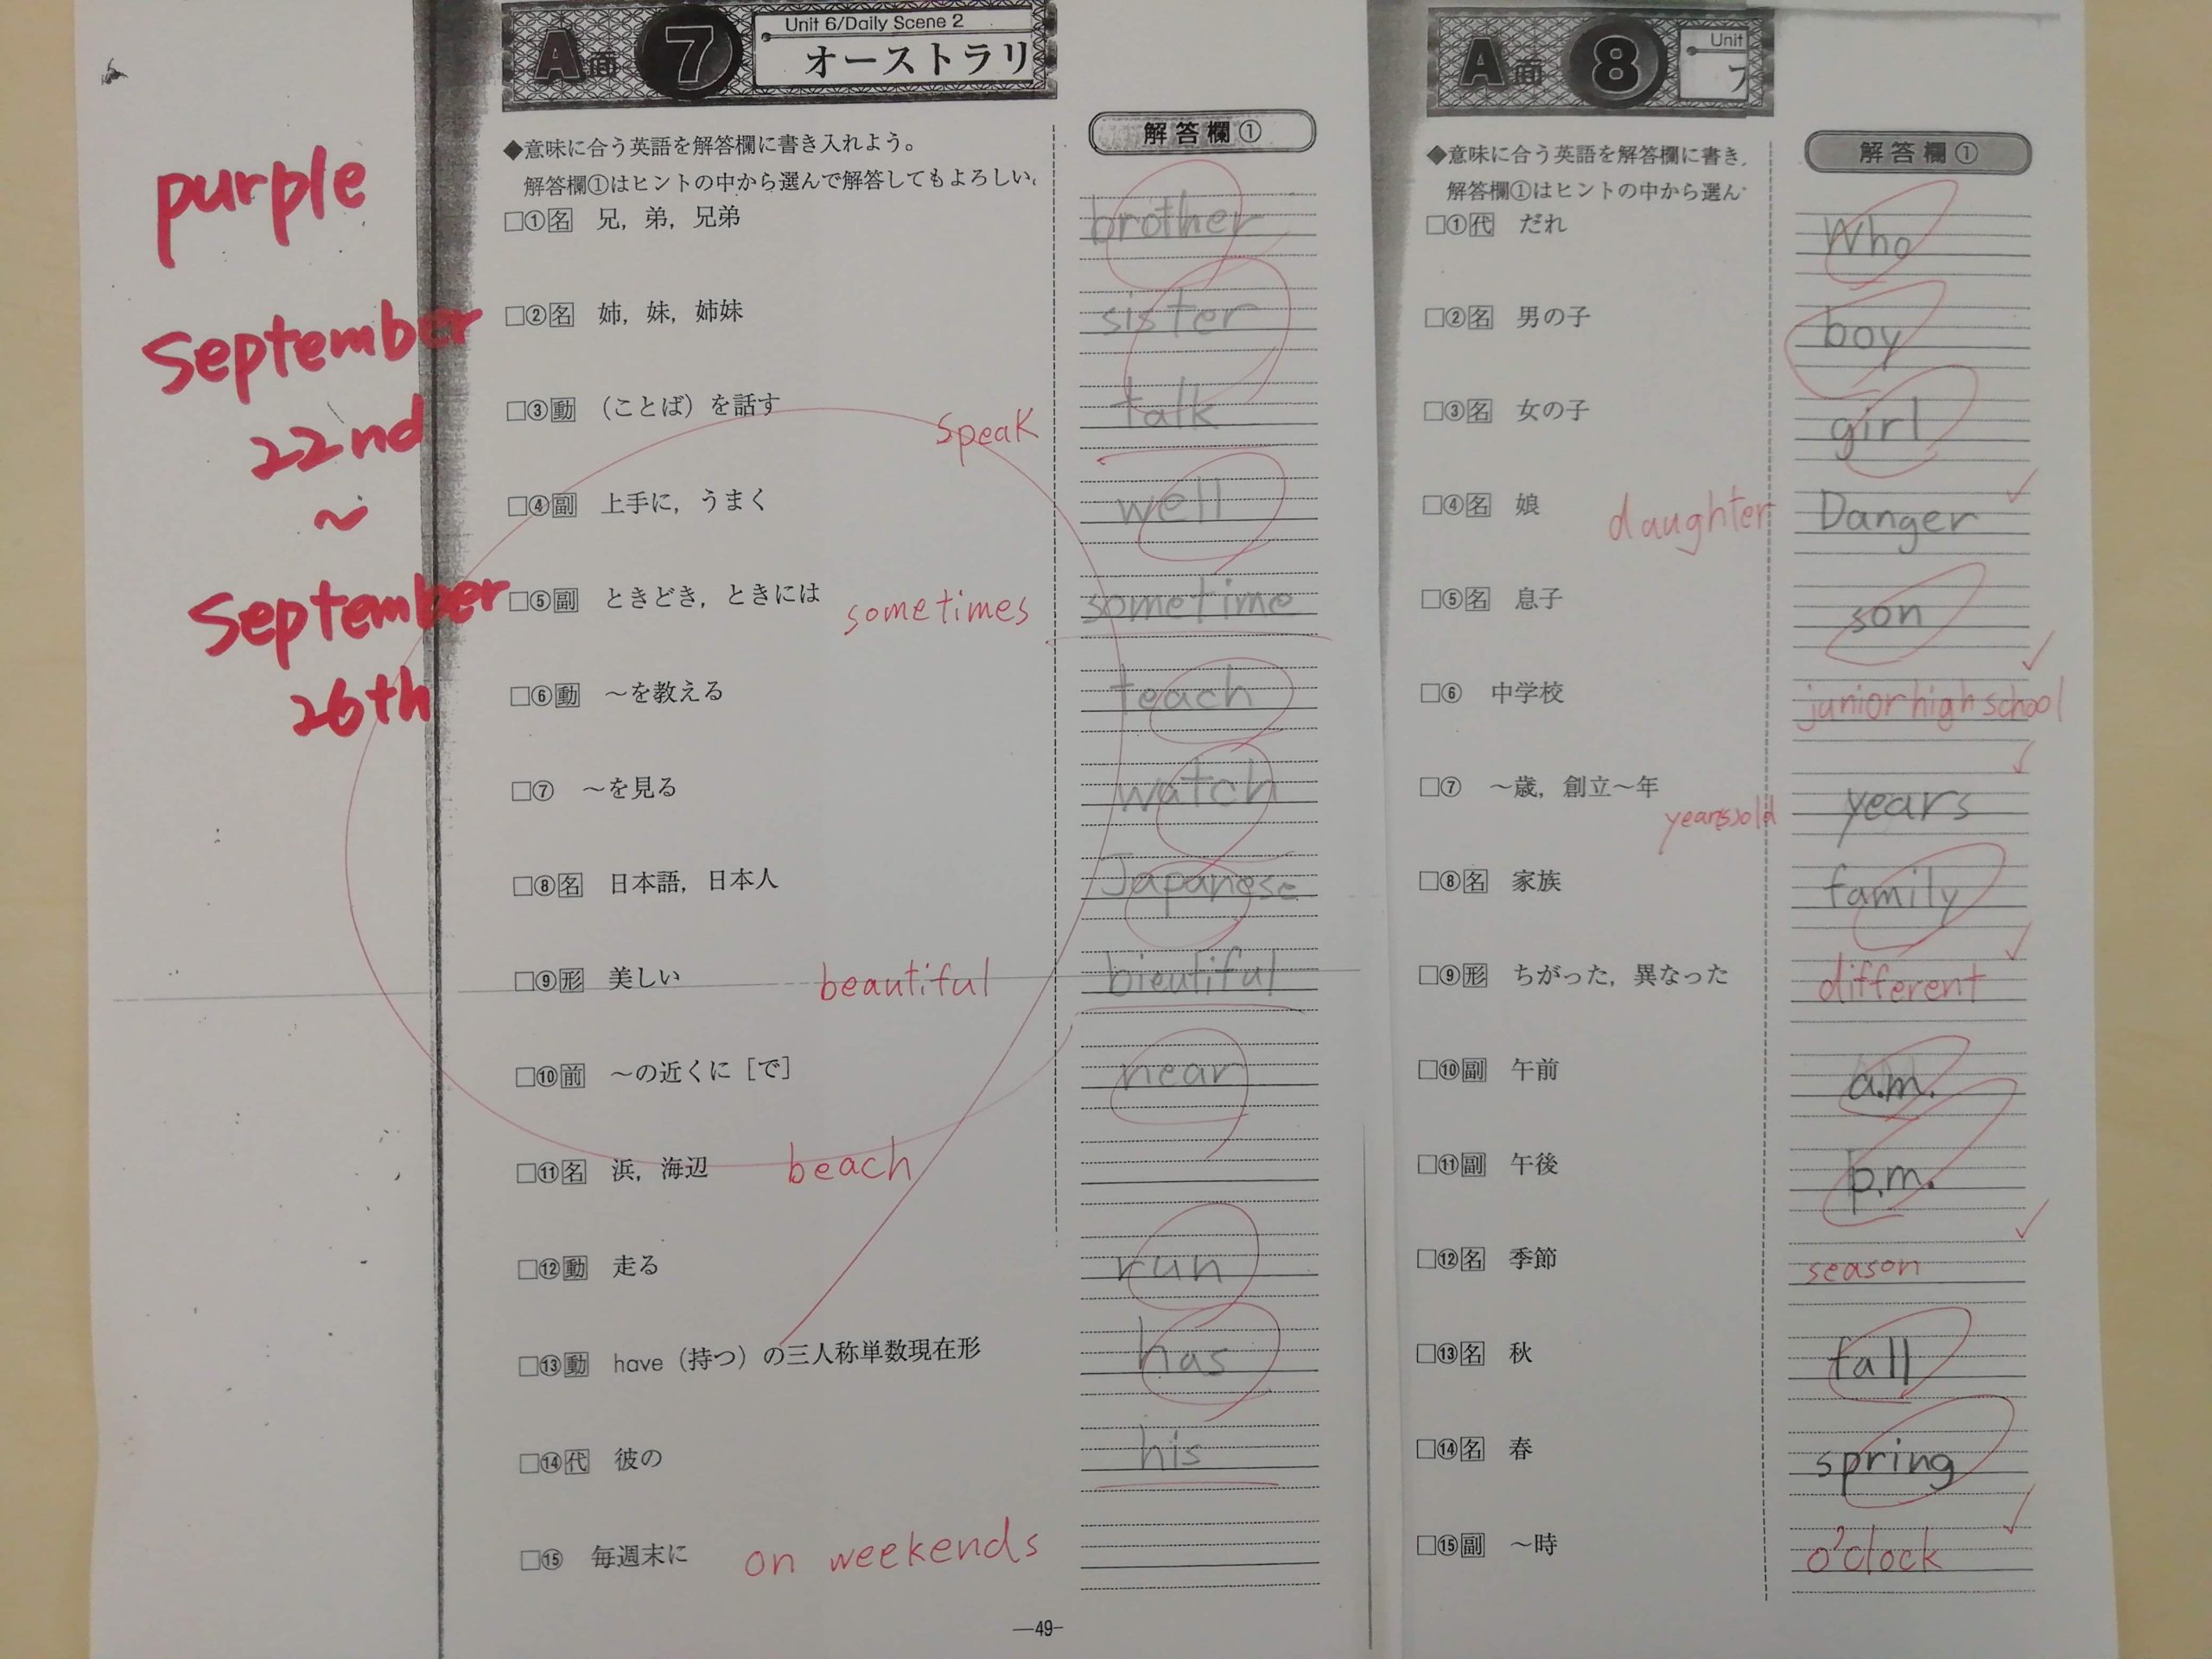 purple
September
22nd
~
September
26th
A面 7
Unit 6/Daily Scene 2
オーストラリ
◆意味に合う英語を解答欄に書き入れよう。
解答欄①はヒントの中から選んで解答してもよろしい。
解答欄①
□①名 兄，弟，兄弟 brother
□②名 姉，妹，姉妹 sister
□③動 （ことば）を話す speak talk
□④副 上手に，うまく well
□⑤副 ときどき，ときには sometimes sometime
□⑥動 ～を教える teach
□⑦ ～を見る watch
□⑧名 日本語，日本人 Japanese
□⑨形 美しい beautiful bieutiful
□⑩前 ～の近くに［で］ near
□⑪名 浜，海辺 beach
□⑫動 走る run
□⑬動 have（持つ）の三人称単数現在形 has
□⑭代 彼の his
□⑮ 毎週末に on weekends
—49—
A面 8
Unit
フ
◆意味に合う英語を解答欄に書き
解答欄①はヒントの中から選ん
解答欄①
□①代 だれ Who
□②名 男の子 boy
□③名 女の子 girl
□④名 娘 daughter Danger
□⑤名 息子 son
□⑥ 中学校 junior high school
□⑦ ～歳，創立～年 year(s) old years
□⑧名 家族 family
□⑨形 ちがった，異なった different
□⑩副 午前 a.m.
□⑪副 午後 p.m.
□⑫名 季節 season
□⑬名 秋 fall
□⑭名 春 spring
□⑮副 ～時 o'clock